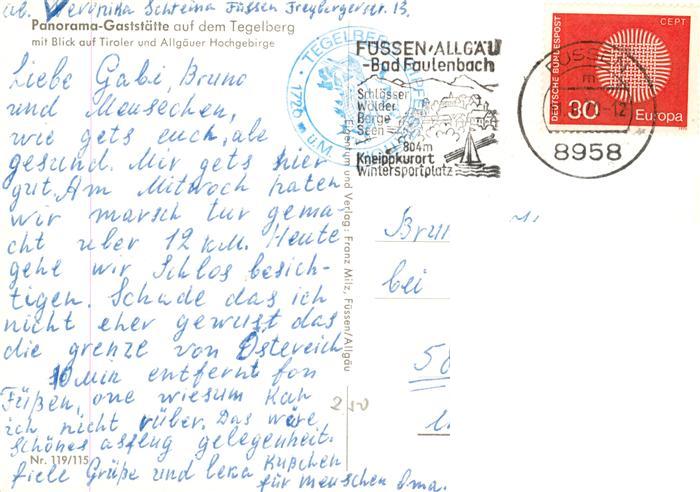 ab. Veronika Schteina Füssen Freybergerstr. 13.
Panorama-Gaststätte auf dem Tegelberg
mit Blick auf Tiroler und Allgäuer Hochgebirge
Liebe Gabi, Bruno
und Meuschen,
wie gets euch, ale
gesund. Mir gets hier
gut. Am Mitwoch haten
wir marsch tur gema-
cht uber 12 KM. Heute
gehe wir Schlos besich-
tigen. Schade das ich
nicht eher gewust das
die grenze von Östereich
10 Min entfernt fon
Füßen, one wiesum kan
ich nicht rüber. Das wäre
schönes asfeug gelegenheit.
fiele Grüße und leka Küßchen
für Meuschen Oma.
Nr. 119/115
250
Eigentum und Verlag: Franz Milz, Füssen/Allgäu
TEGELBERG
1720 m ü.M.
FÜSSEN-ALLGÄU
-Bad Faulenbach
Schlösser
Wälder
Berge
Seen
804m
Kneippkurort
Wintersportplatz
FÜSSEN
m
-12
8958
DEUTSCHE BUNDESPOST
CEPT
30
Europa
Brun
bei